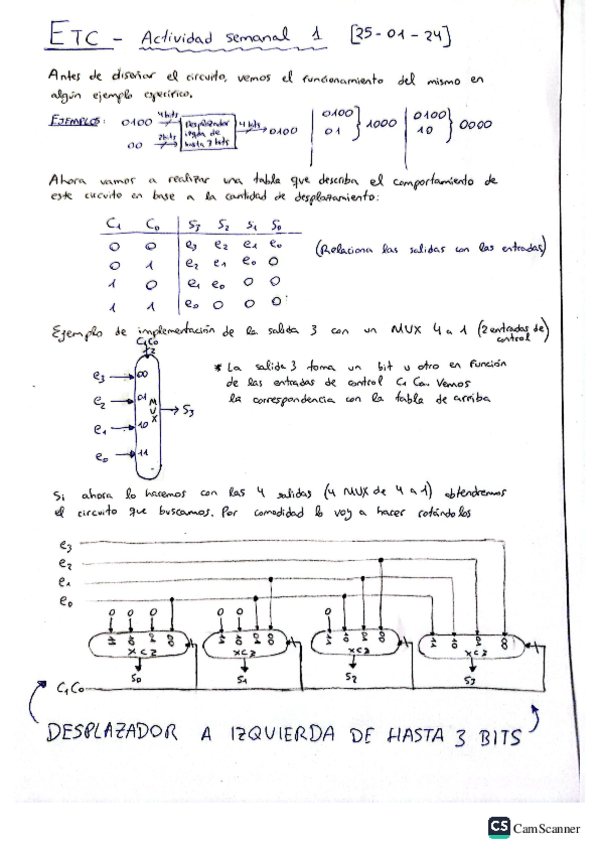 ETC - Actividad semanal 1 [25-01-24]
Antes de diseñar el circuito, vemos el funcionamiento del mismo en
algún ejemplo específico.
EJEMPLOS: 0100 4 bits Desplazador izqda de hasta 3 bits 4 bits 0100
00 2 bits
0100 01 1000
0100 10 0000
Ahora vamos a realizar una tabla que describa el comportamiento de
este circuito en base a la cantidad de desplazamiento:
C1 C0 S3 S2 S1 S0
0 0 e3 e2 e1 e0 (Relaciona las salidas con las entradas)
0 1 e2 e1 e0 0
1 0 e1 e0 0 0
1 1 e0 0 0 0
Ejemplo de implementación de la salida 3 con un MUX 4 a 1 (2 entradas de control)
C1C0
2
e3 00
e2 01
e1 10
e0 11
MUX
S3
* La salida 3 toma un bit u otro en función
de las entradas de control C1 C0. Vemos
la correspondencia con la tabla de arriba
Si ahora lo hacemos con las 4 salidas (4 MUX de 4 a 1) obtendremos
el circuito que buscamos. Por comodidad lo voy a hacer rotándolos
e3
e2
e1
e0
0 0 0 0 0 0
11 10 01 00 11 10 01 00 11 10 01 00 11 10 01 00
MUX MUX MUX MUX
S0 S1 S2 S3
C1C0
DESPLAZADOR A IZQUIERDA DE HASTA 3 BITS
CS CamScanner